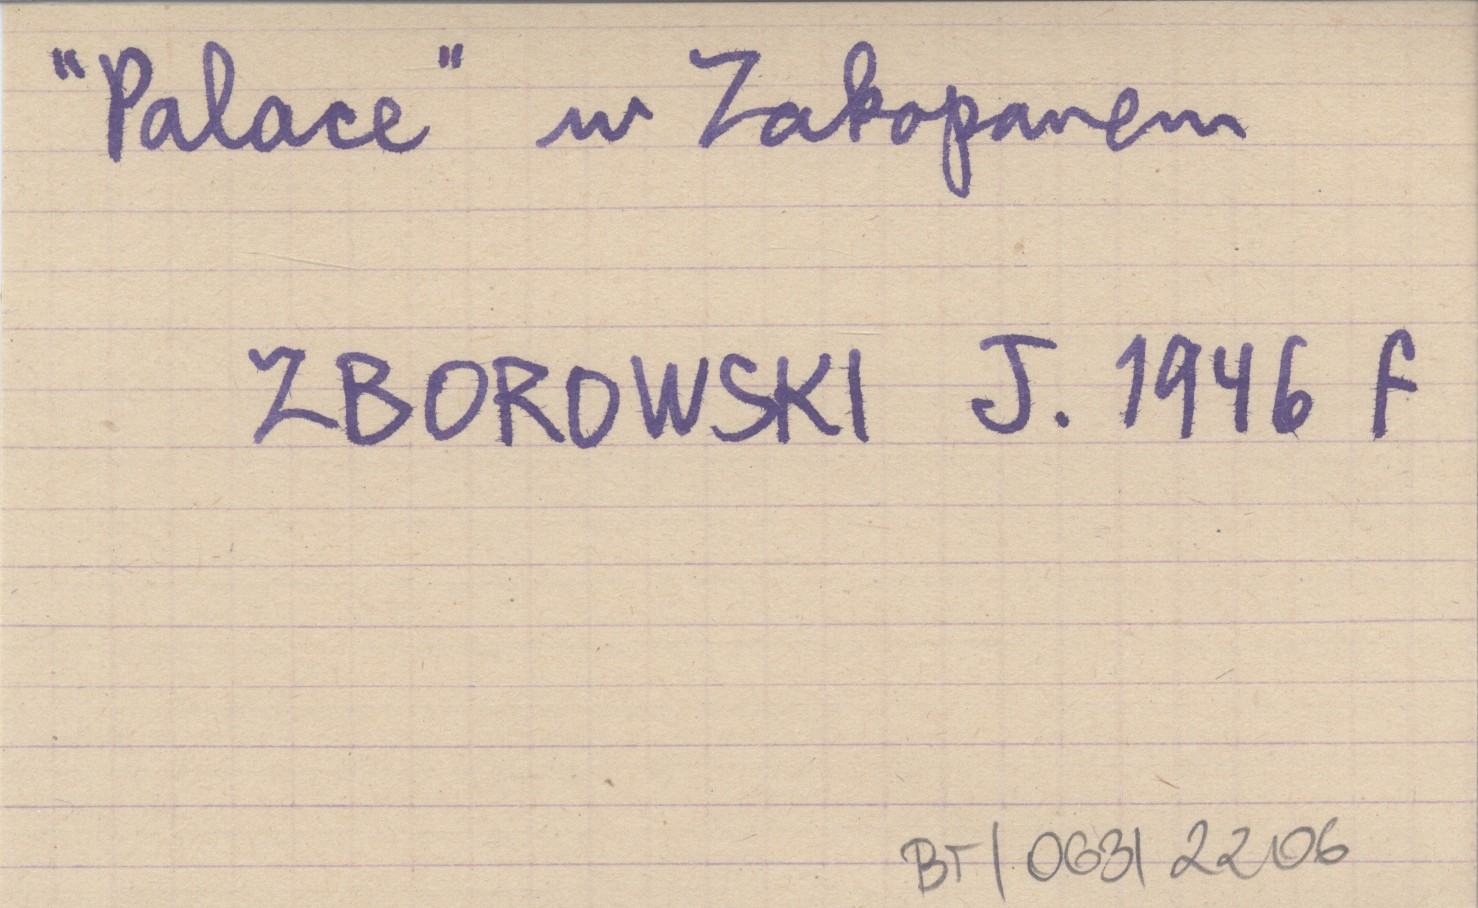 "Palace" w Zakopanem
ZBOROWSKI J. 1946 F
BT/063/2206